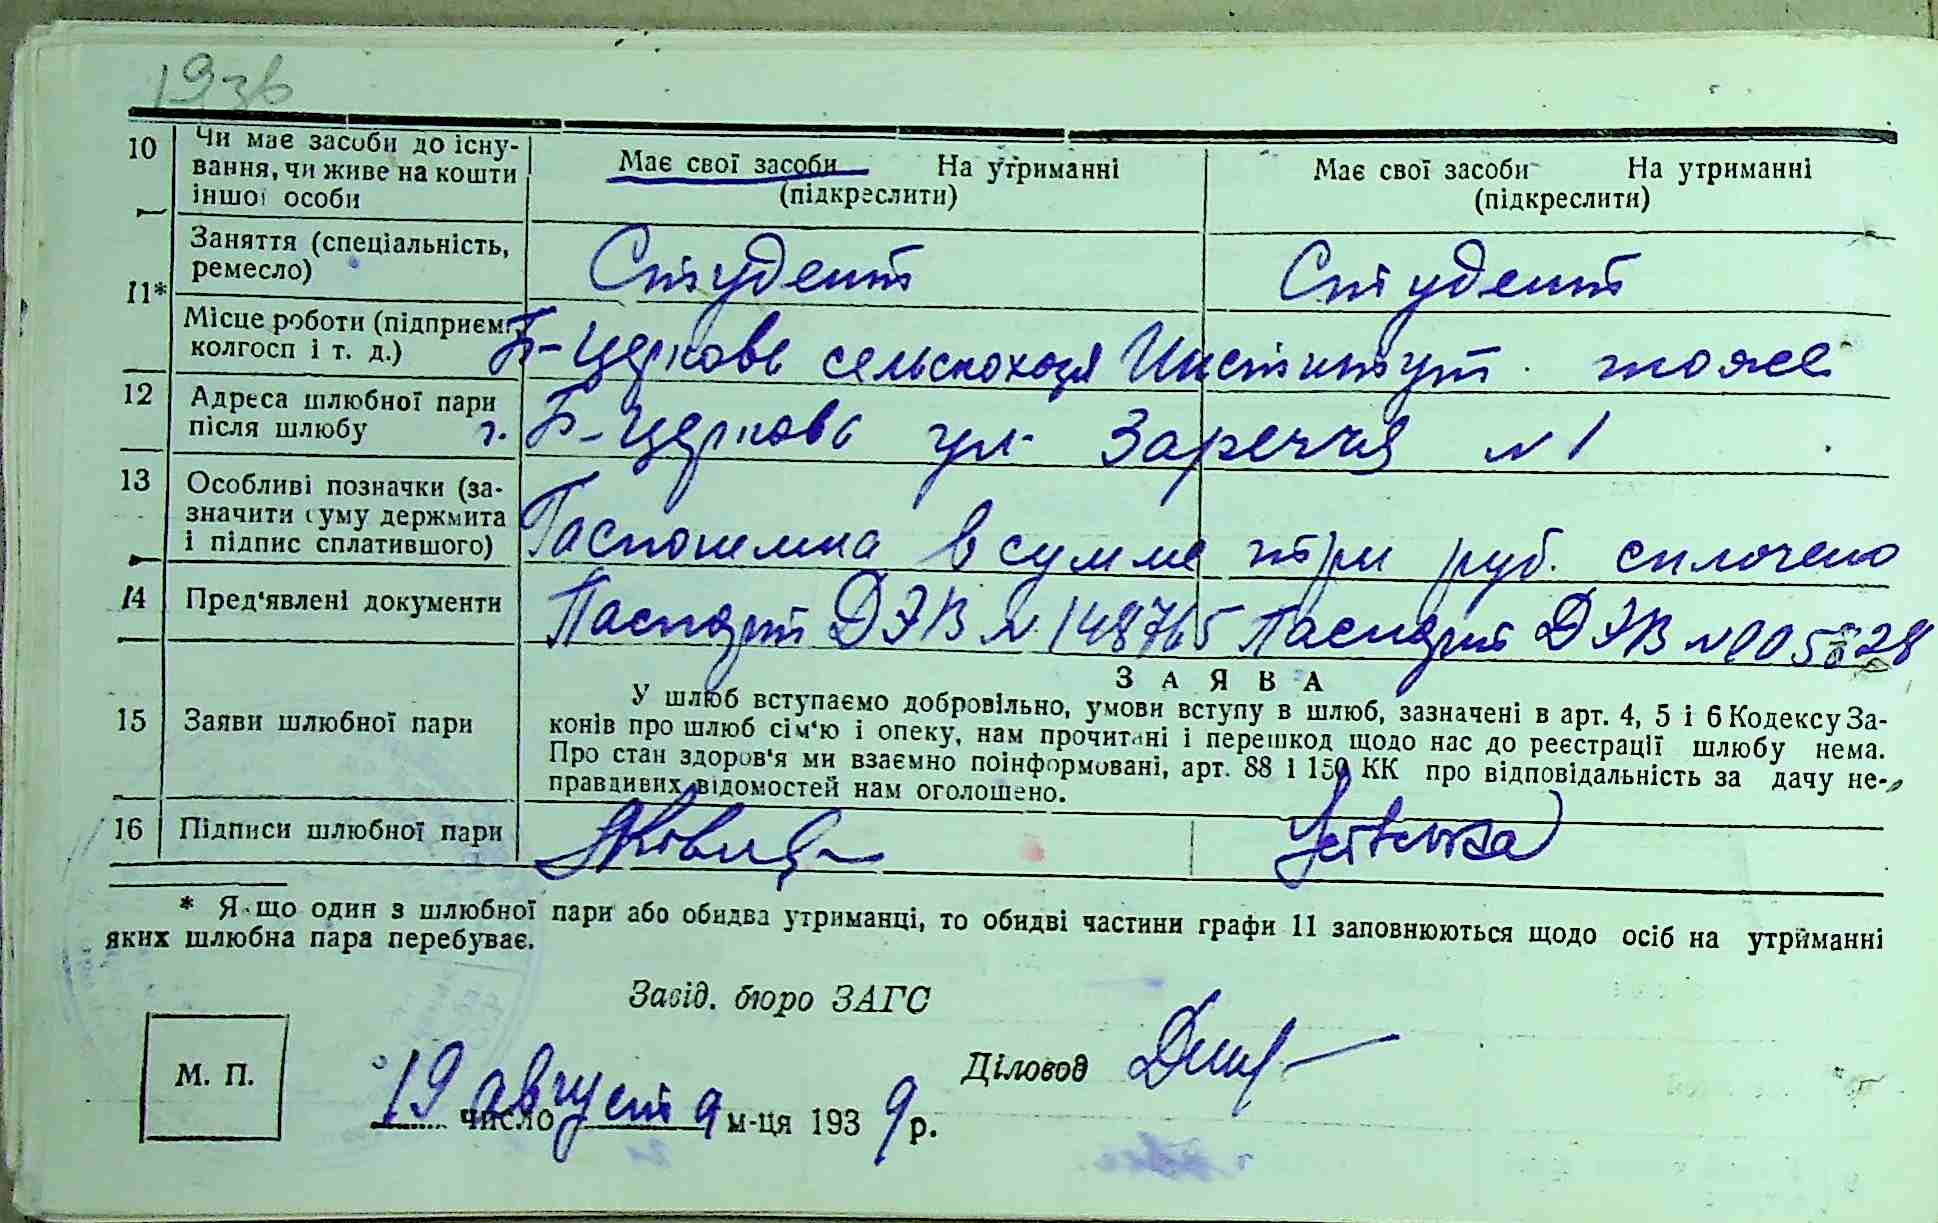 193b
10 Чи має засоби до існу-
вання, чи живе на кошти
іншої особи
Має свої засоби На утриманні
(підкреслити)
Має свої засоби На утриманні
(підкреслити)
11*
Заняття (спеціальність,
ремесло)
Студент Студент
Місце роботи (підприєм.,
колгосп і т. д.)
Б-Церковь сельскохозя Институт. тоже
12 Адреса шлюбної пари
після шлюбу
г. Б-Церковь ул. Заречья № 1
13 Особливі позначки (за-
значити суму держмита
і підпис сплатившого)
Госпошлина в сумме три руб. сплочено
14 Пред'явлені документи
Паспорт ДЭВ № 148765 Паспорт ДЭВ № 005828
З А Я В А
15 Заяви шлюбної пари
У шлюб вступаємо добровільно, умови вступу в шлюб, зазначені в арт. 4, 5 і 6 Кодексу За-
конів про шлюб сім'ю і опеку, нам прочитані і перешкод щодо нас до реєстрації шлюбу нема.
Про стан здоров'я ми взаємно поінформовані, арт. 88 і 150 КК про відповідальність за дачу не-
правдивих відомостей нам оголошено.
16 Підписи шлюбної пари
* Якщо один з шлюбної пари або обидва утриманці, то обидві частини графи 11 заповнюються щодо осіб на утриманні
яких шлюбна пара перебуває.
Завід. бюро ЗАГС
Діловод
М. П.
19 число августа м-ця 1939 р.